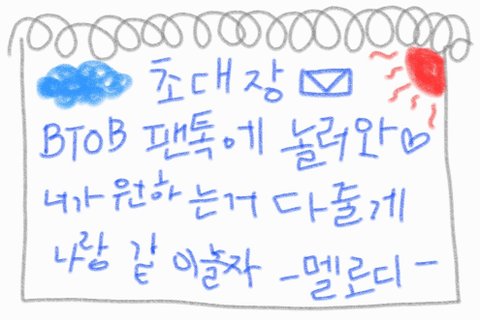 초대장
BTOB 팬톡에 놀러와♡
너가 원하는거 다줄게
나랑 같이놀자 -멜로디-